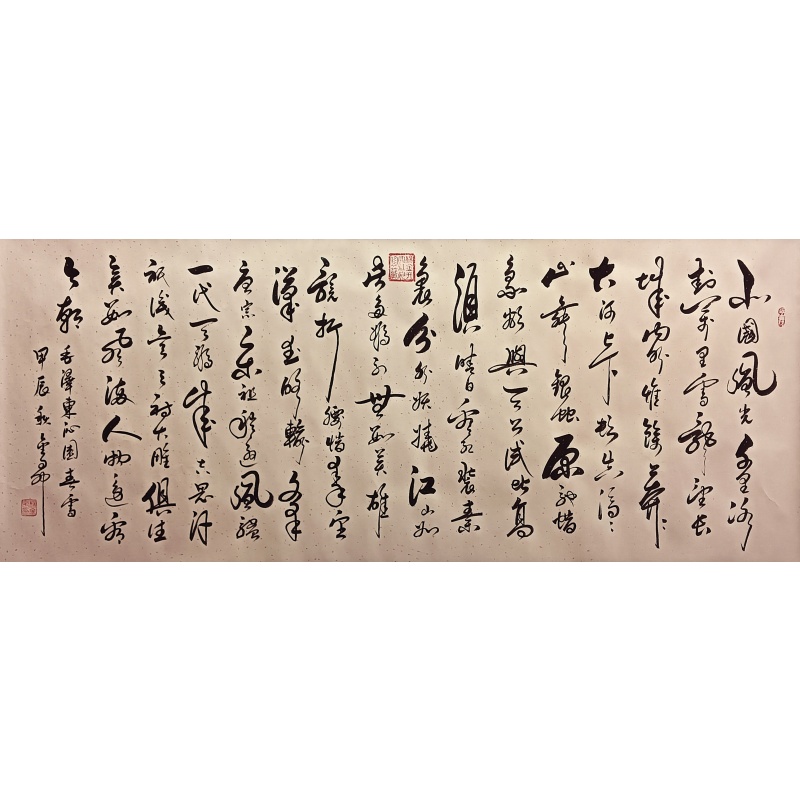 北國風光千里冰
封萬里雪飄望長
城內外惟餘莽〻
大河上下頓失滔〻
山舞銀蛇原馳蜡
象欲與天公試比高
須晴日看紅裝素
裹分外妖嬈江山如
此多嬌引無數英雄
競折腰惜秦皇
漢武略輸文采
唐宗宋祖稍遜風騷
一代天驕成吉思汗
祇識彎弓射大雕俱往
矣數風流人物還看
今朝
毛澤東沁園春雪
甲辰秋